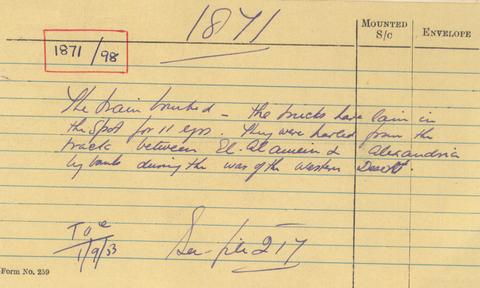 1871
MOUNTED S/C
ENVELOPE
1871/98
The train bombed - the trucks have lain in
the spot for 11 yrs. They were hurled from the
track between El-Alamein & Alexandria
by bombs during the war of the western Desert.
1/9/53
Form No. 259